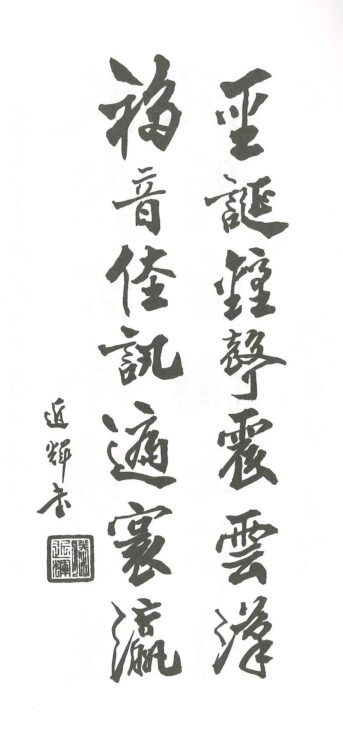 聖誕鐘聲震雲漢
福音佳訊遍寰瀛
近輝書